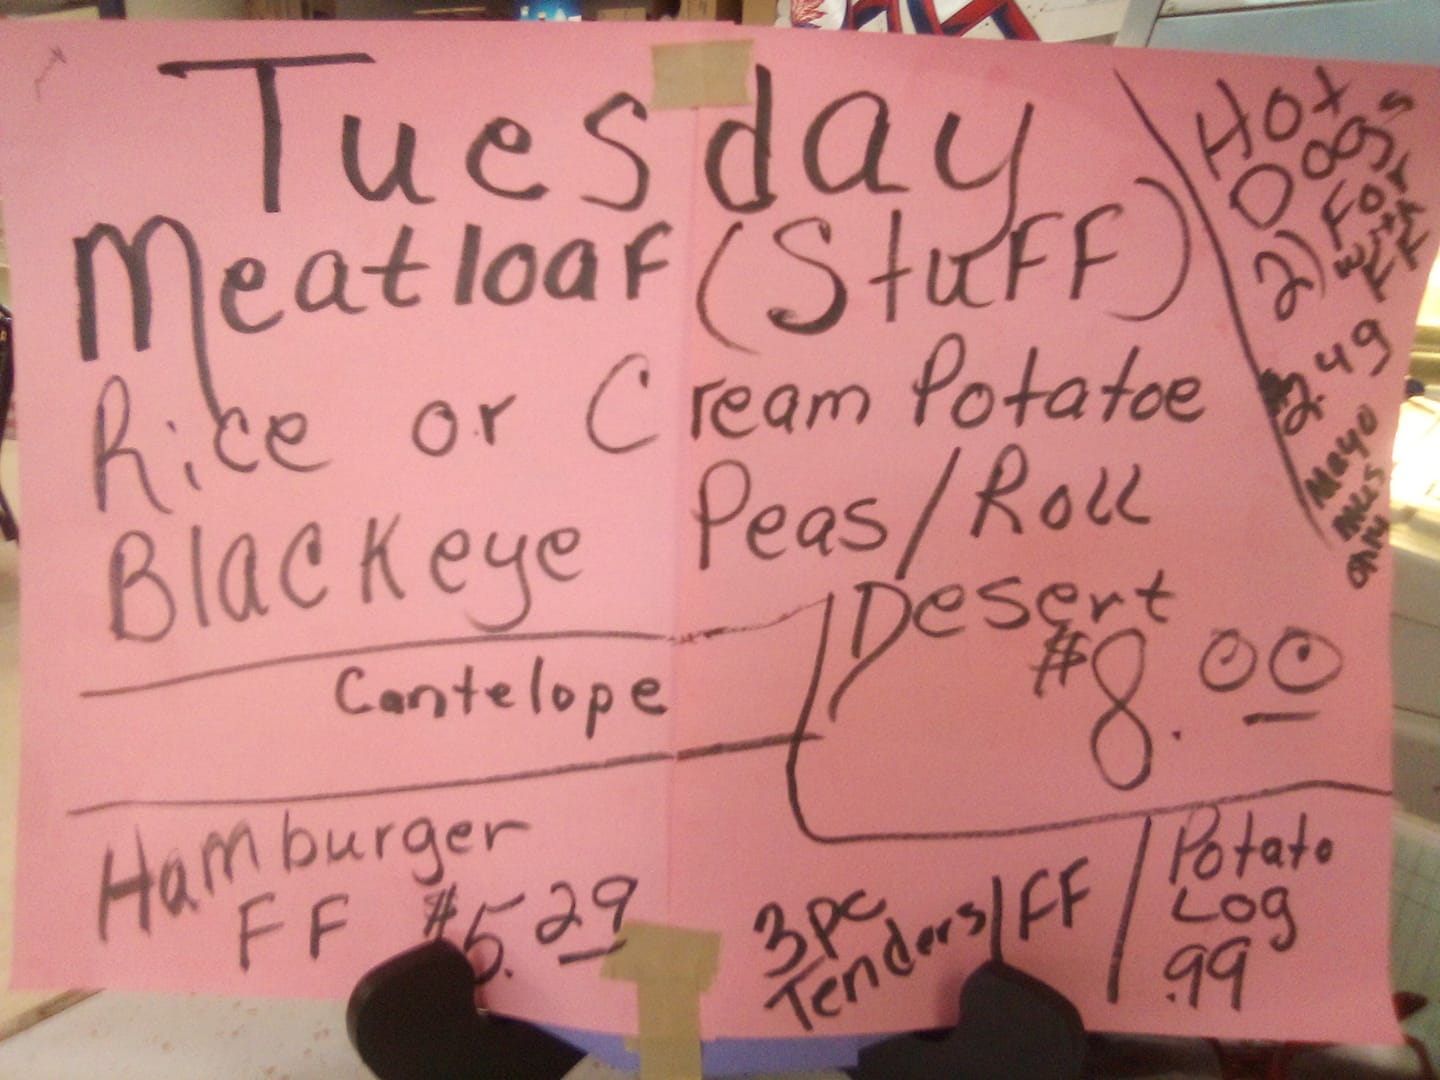 Tuesday
Meatloaf (Stuff)
Rice or Cream Potatoe
Blackeye Peas / Roll
Desert
$8.00
Cantelope
Hamburger
FF $5.29
3pc
Tenders / FF
Potato
Log
.99
Hot
Dogs
2) For
with
FF
$2.49
Mayo
only